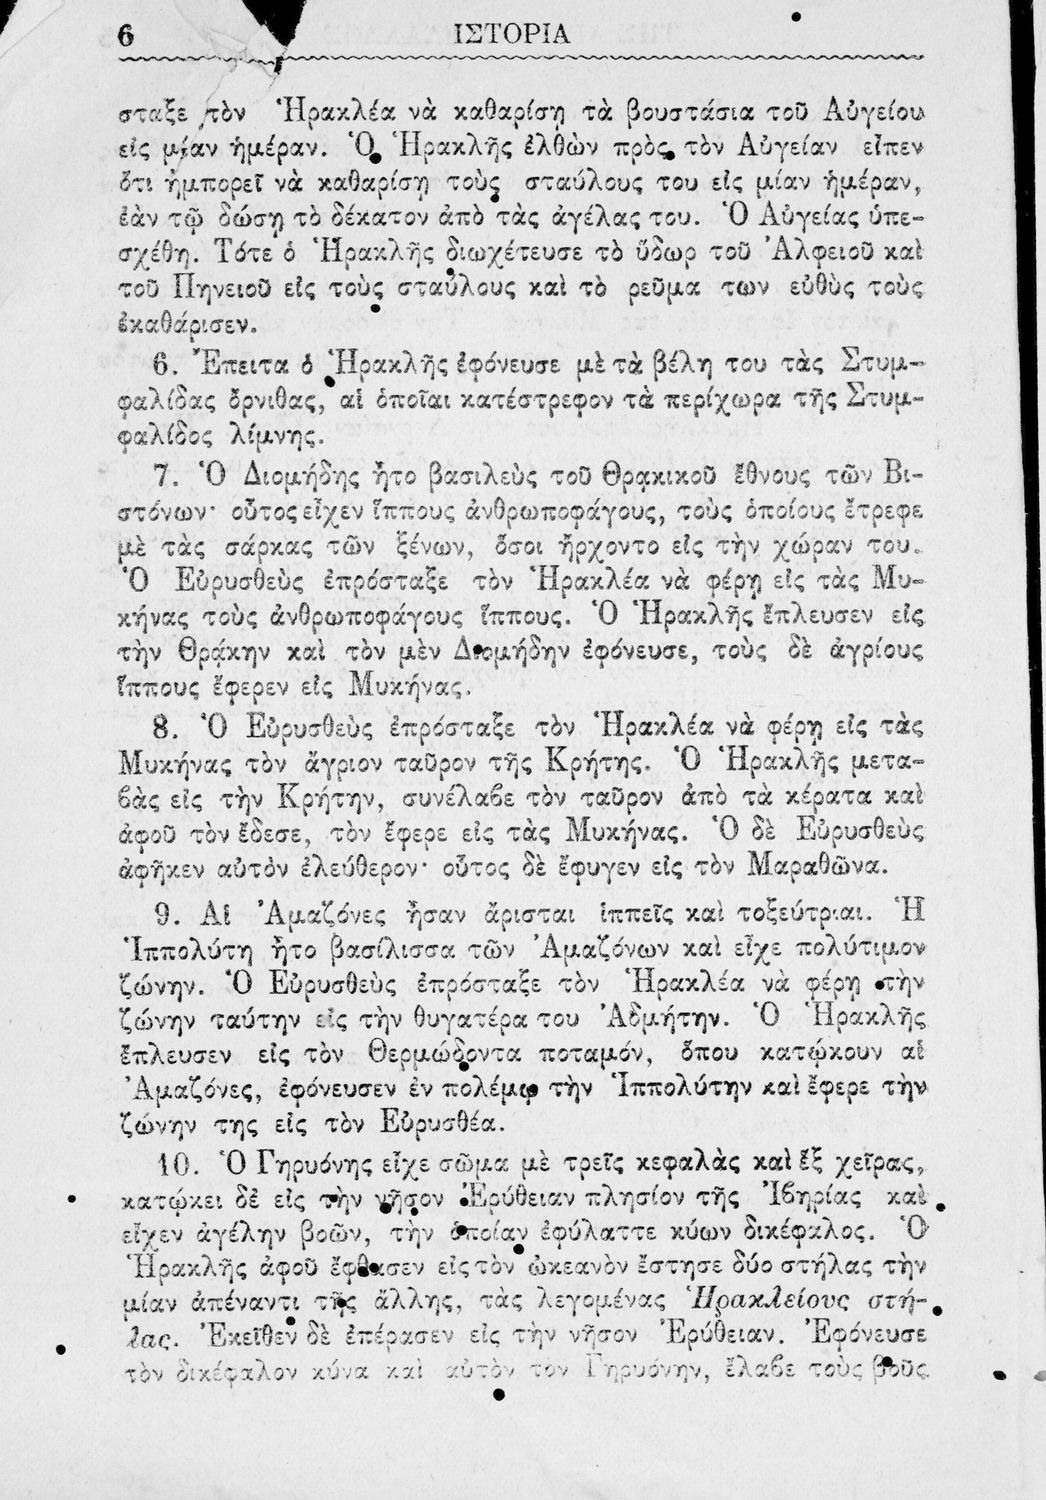 6 ΙΣΤΟΡΙΑ
σταξε τὸν Ἡρακλέα νὰ καθαρίσῃ τὰ βουστάσια τοῦ Αὐγείου
εἰς μίαν ἡμέραν. Ὁ Ἡρακλῆς ἐλθὼν πρὸς τὸν Αὐγείαν εἶπεν
ὅτι ἠμπορεῖ νὰ καθαρίσῃ τοὺς σταύλους του εἰς μίαν ἡμέραν,
ἐὰν τῷ δώσῃ τὸ δέκατον ἀπὸ τὰς ἀγέλας του. Ὁ Αὐγείας ὑπε-
σχέθη. Τότε ὁ Ἡρακλῆς διωχέτευσε τὸ ὕδωρ τοῦ Ἀλφειοῦ καὶ
τοῦ Πηνειοῦ εἰς τοὺς σταύλους καὶ τὸ ρεῦμα των εὐθὺς τοὺς
ἐκαθάρισεν.
6. Ἔπειτα ὁ Ἡρακλῆς ἐφόνευσε μὲ τὰ βέλη του τὰς Στυμ-
φαλίδας ὄρνιθας, αἱ ὁποῖαι κατέστρεφον τὰ περίχωρα τῆς Στυμ-
φαλίδος λίμνης.
7. Ὁ Διομήδης ἦτο βασιλεὺς τοῦ Θρακικοῦ ἔθνους τῶν Βι-
στόνων· οὗτος εἶχεν ἵππους ἀνθρωποφάγους, τοὺς ὁποίους ἔτρεφε
μὲ τὰς σάρκας τῶν ξένων, ὅσοι ἤρχοντο εἰς τὴν χώραν του.
Ὁ Εὐρυσθεὺς ἐπρόσταξε τὸν Ἡρακλέα νὰ φέρῃ εἰς τὰς Μυ-
κήνας τοὺς ἀνθρωποφάγους ἵππους. Ὁ Ἡρακλῆς ἔπλευσεν εἰς
τὴν Θράκην καὶ τὸν μὲν Διομήδην ἐφόνευσε, τοὺς δὲ ἀγρίους
ἵππους ἔφερεν εἰς Μυκήνας.
8. Ὁ Εὐρυσθεὺς ἐπρόσταξε τὸν Ἡρακλέα νὰ φέρῃ εἰς τὰς
Μυκήνας τὸν ἄγριον ταῦρον τῆς Κρήτης. Ὁ Ἡρακλῆς μετα-
βὰς εἰς τὴν Κρήτην, συνέλαβε τὸν ταῦρον ἀπὸ τὰ κέρατα καὶ
ἀφοῦ τὸν ἔδεσε, τὸν ἔφερε εἰς τὰς Μυκήνας. Ὁ δὲ Εὐρυσθεὺς
ἀφῆκεν αὐτὸν ἐλεύθερον· οὗτος δὲ ἔφυγεν εἰς τὸν Μαραθῶνα.
9. Αἱ Ἀμαζόνες ἦσαν ἄρισται ἱππεῖς καὶ τοξεύτριαι. Ἡ
Ἱππολύτη ἦτο βασίλισσα τῶν Ἀμαζόνων καὶ εἶχε πολύτιμον
ζώνην. Ὁ Εὐρυσθεὺς ἐπρόσταξε τὸν Ἡρακλέα νὰ φέρῃ τὴν
ζώνην ταύτην εἰς τὴν θυγατέρα του Ἀδμήτην. Ὁ Ἡρακλῆς
ἔπλευσεν εἰς τὸν Θερμώδοντα ποταμόν, ὅπου κατῴκουν αἱ
Ἀμαζόνες, ἐφόνευσεν ἐν πολέμῳ τὴν Ἱππολύτην καὶ ἔφερε τὴν
ζώνην της εἰς τὸν Εὐρυσθέα.
10. Ὁ Γηρυόνης εἶχε σῶμα μὲ τρεῖς κεφαλὰς καὶ ἓξ χεῖρας,
κατῴκει δὲ εἰς τὴν νῆσον Ἐρύθειαν πλησίον τῆς Ἰβηρίας καὶ
εἶχεν ἀγέλην βοῶν, τὴν ὁποίαν ἐφύλαττε κύων δικέφαλος. Ὁ
Ἡρακλῆς ἀφοῦ ἔφθασεν εἰς τὸν ὠκεανὸν ἔστησε δύο στήλας τὴν
μίαν ἀπέναντι τῆς ἄλλης, τὰς λεγομένας Ἡρακλείους στή-
λας. Ἐκεῖθεν δὲ ἐπέρασεν εἰς τὴν νῆσον Ἐρύθειαν. Ἐφόνευσε
τὸν δικέφαλον κύνα καὶ αὐτὸν τὸν Γηρυόνην, ἔλαβε τοὺς βοῦς